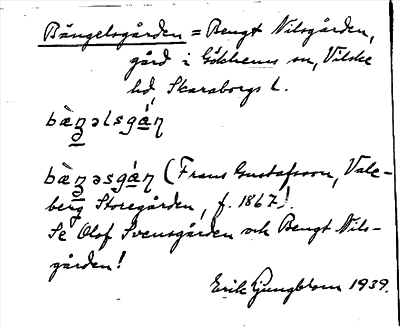 Bängelsgården = Bengt Nilsgården,
gård i Gökhems sn, Vilske
hd, Skaraborgs l.
bæ̀ŋəlsgáɳ
bæ̀ŋəsgáɳ (Frans Gustafsson, Vale-
berg Storegården, f. 1867).
Se Olof Svensgården och Bengt Nils-
gården!
Erik Ljungblom 1939.